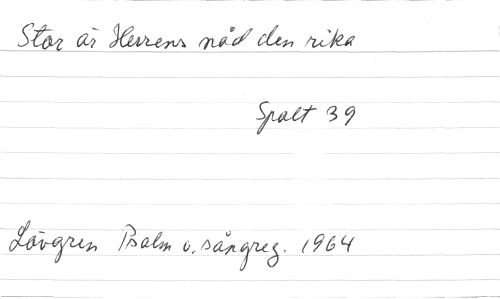 Stor är Herrens nåd den rika
Spalt 39
Lövgren Psalm o. sångreg. 1964